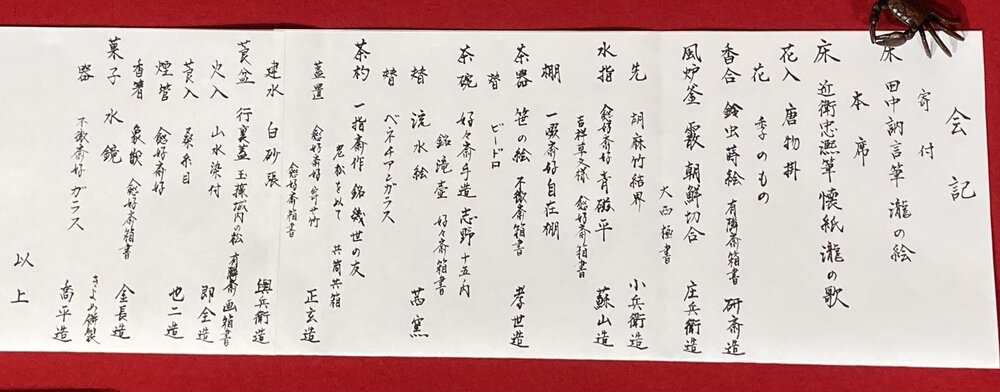 会記
寄付
床 田中訥言筆 瀧の絵
本席
床 近衛忠熈筆 懐紙 瀧の歌
花入 唐物掛
花 季のもの
香合 鈴虫蒔絵 有隣斎箱書 研斎造
風炉釜 霰 朝鮮切合 庄兵衛造
大西極書
先 胡麻竹結界 小兵衛造
水指 愈好斎好 青磁平 蘇山造
吉祥草文様 愈好斎箱書
棚 一啜斎好 自在棚
茶器 笹の絵 不徹斎箱書 孝世造
替 ビードロ
茶碗 好々斎手造 志野 十五ノ内
銘 滝壺 好々斎箱書
替 流水絵 萬窯
替 ベネチアンガラス
茶杓 一指斎作 銘 幾世の友
老松を以て 共筒共箱
蓋置 愈好斎好 寄せ竹 正玄造
愈好斎箱書
建水 白砂張 與兵衛造
莨盆 行裏蓋 玉藻城内の松 有隣斎画箱書
火入 山水染付 即全造
莨入 桑糸目 也二造
煙管 愈好斎好
香箸 象嵌 愈好斎箱書 金長造
菓子 水鏡 きよめ餅製
器 不徹斎好 ガラス 喬平造
以上